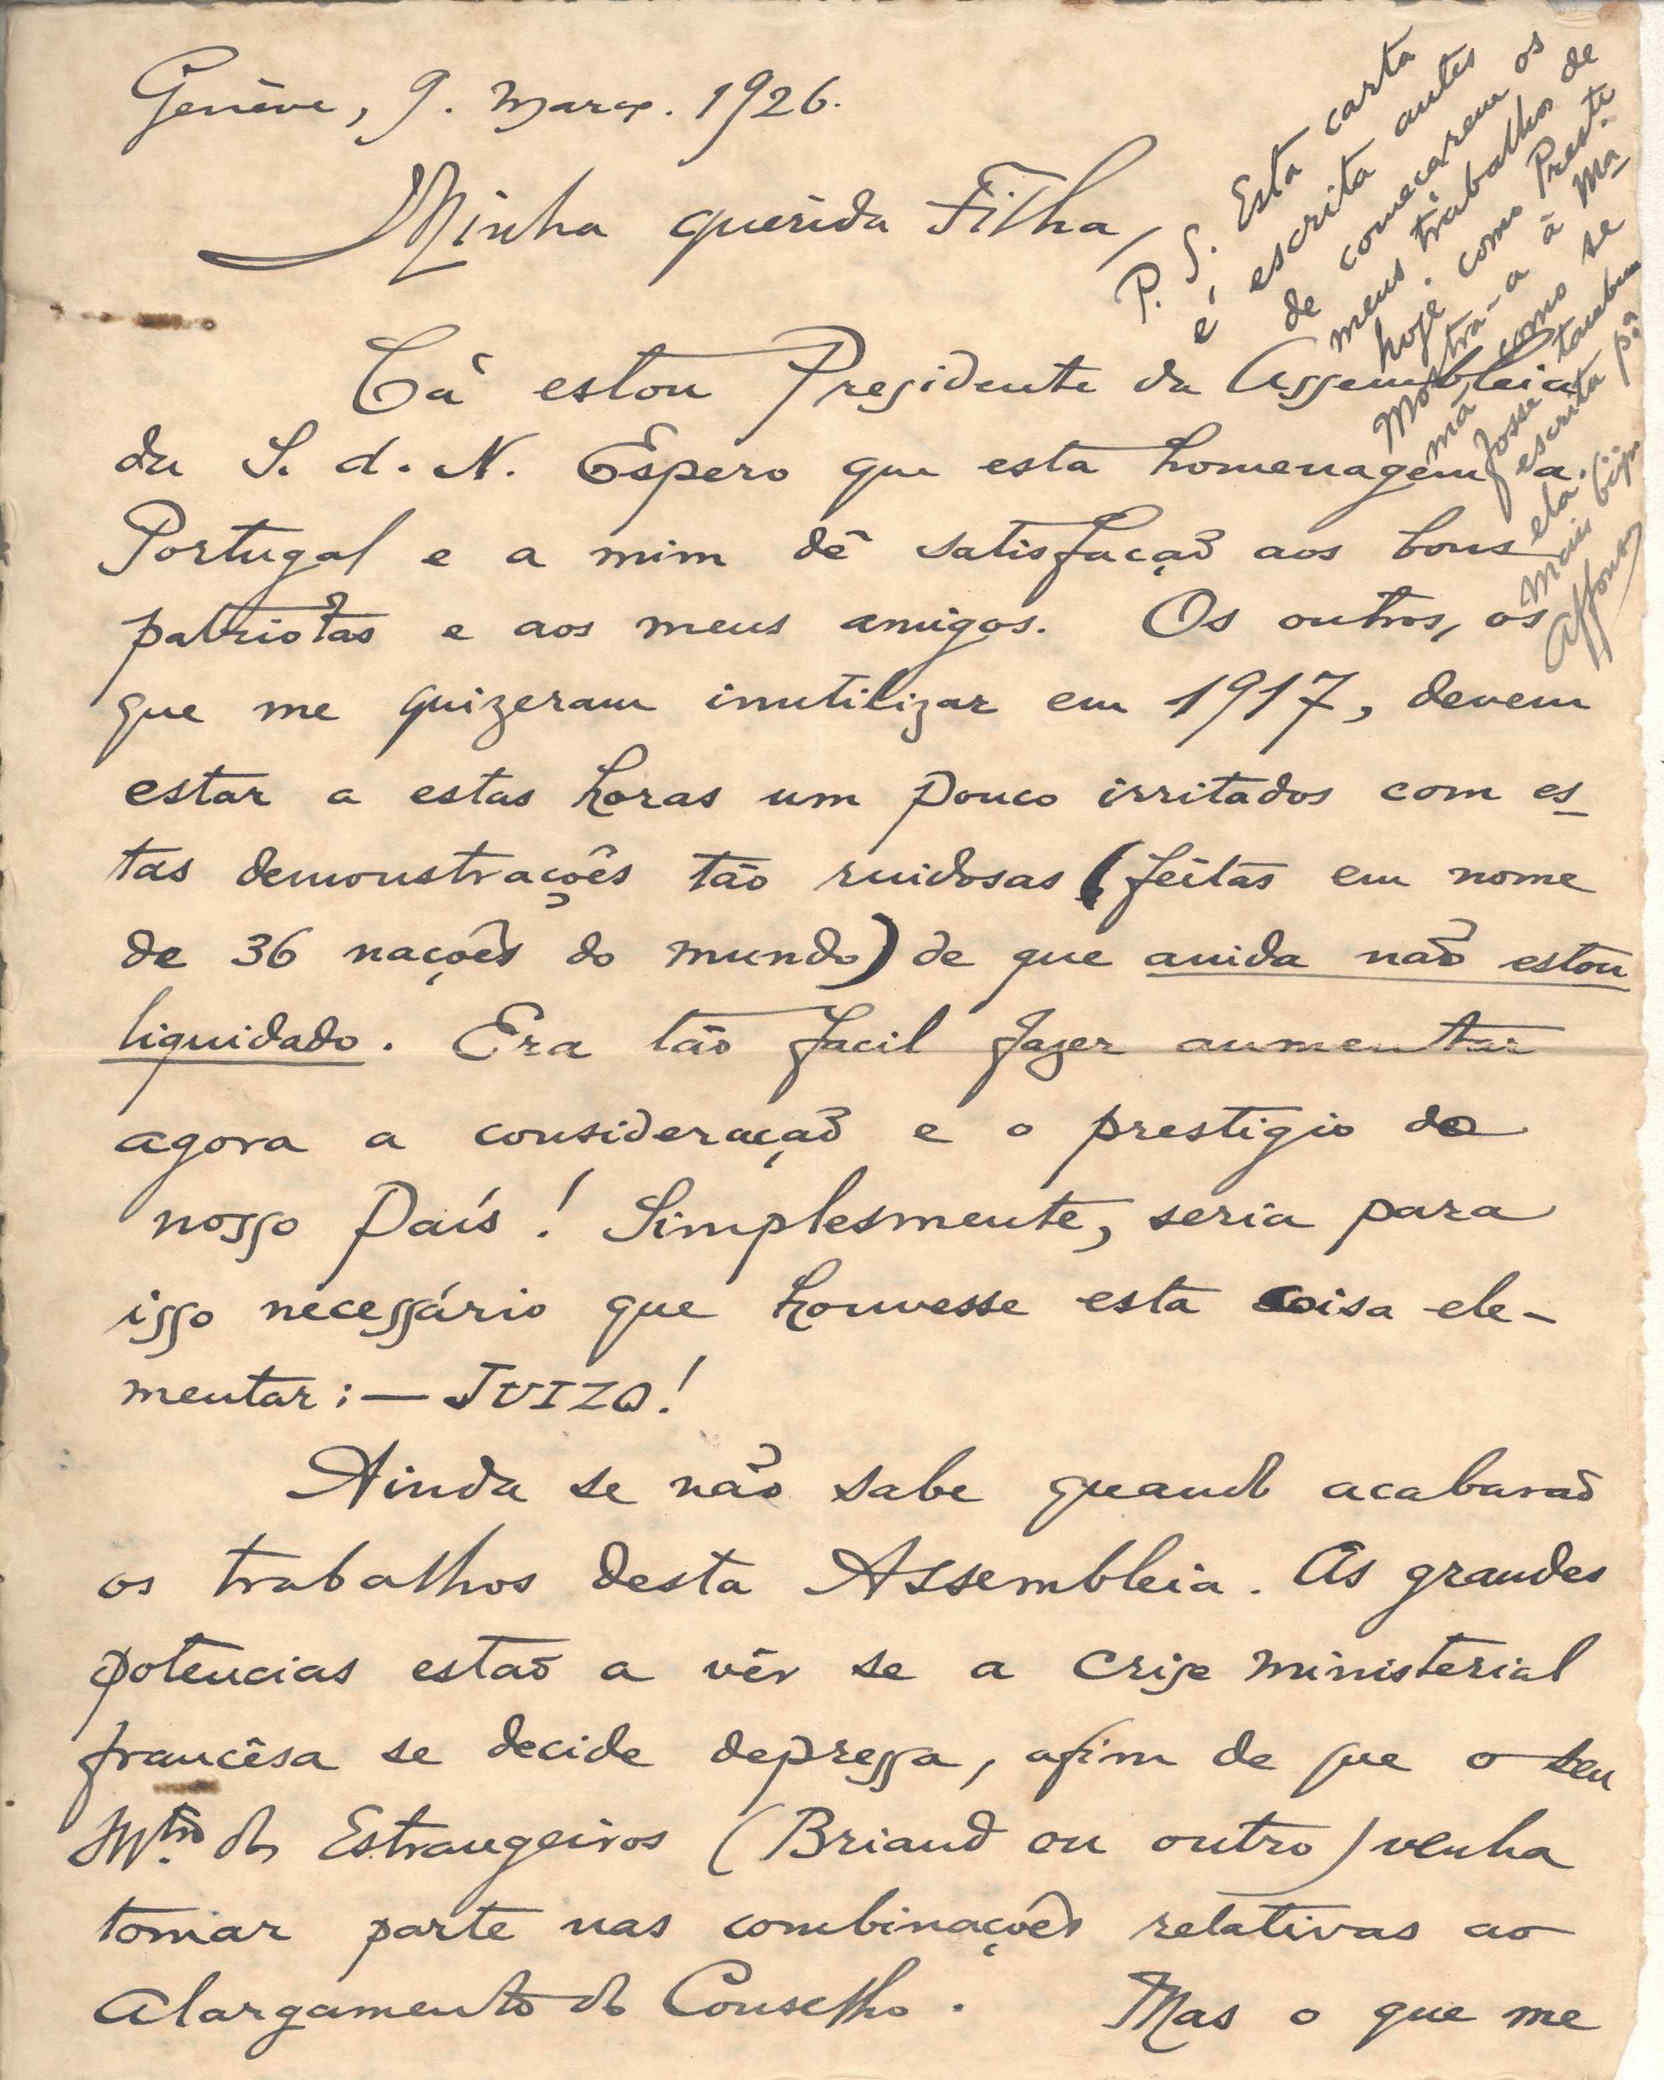 Genève, 9. Março. 1926.
Minha querida Filha,
Cá estou Presidente da Assembleia
da S. d. N. Espero que esta homenagem a
Portugal e a mim dê satisfação aos bons
patriotas e aos meus amigos. Os outros, os
que me quizeram inutilizar em 1917, devem
estar a estas horas um pouco irritados com es-
tas demonstrações tão ruidosas (feitas em nome
de 36 nações do mundo) de que ainda não estou
liquidado. Era tão facil fazer aumentar
agora a consideração e o prestigio do
nosso País! Simplesmente, seria para
isso necessário que houvesse esta coisa ele-
mentar: — JUIZO!
Ainda se não sabe quando acabarão
os trabalhos desta Assembleia. As grandes
potencias estão a vêr se a crise ministerial
francêsa se decide depressa, afim de que o seu
M.tro dos Estrangeiros (Briand ou outro) venha
tomar parte nas combinações relativas ao
alargamento do Conselho. Mas o que me
P. S. Esta carta
é escrita antes
de começarem os
meus trabalhos de
hoje como Presid.te
Mostra-a à Ma-
mã, como se
fosse tambem
escrita p.a
ela.
Mais bjs
Affonso